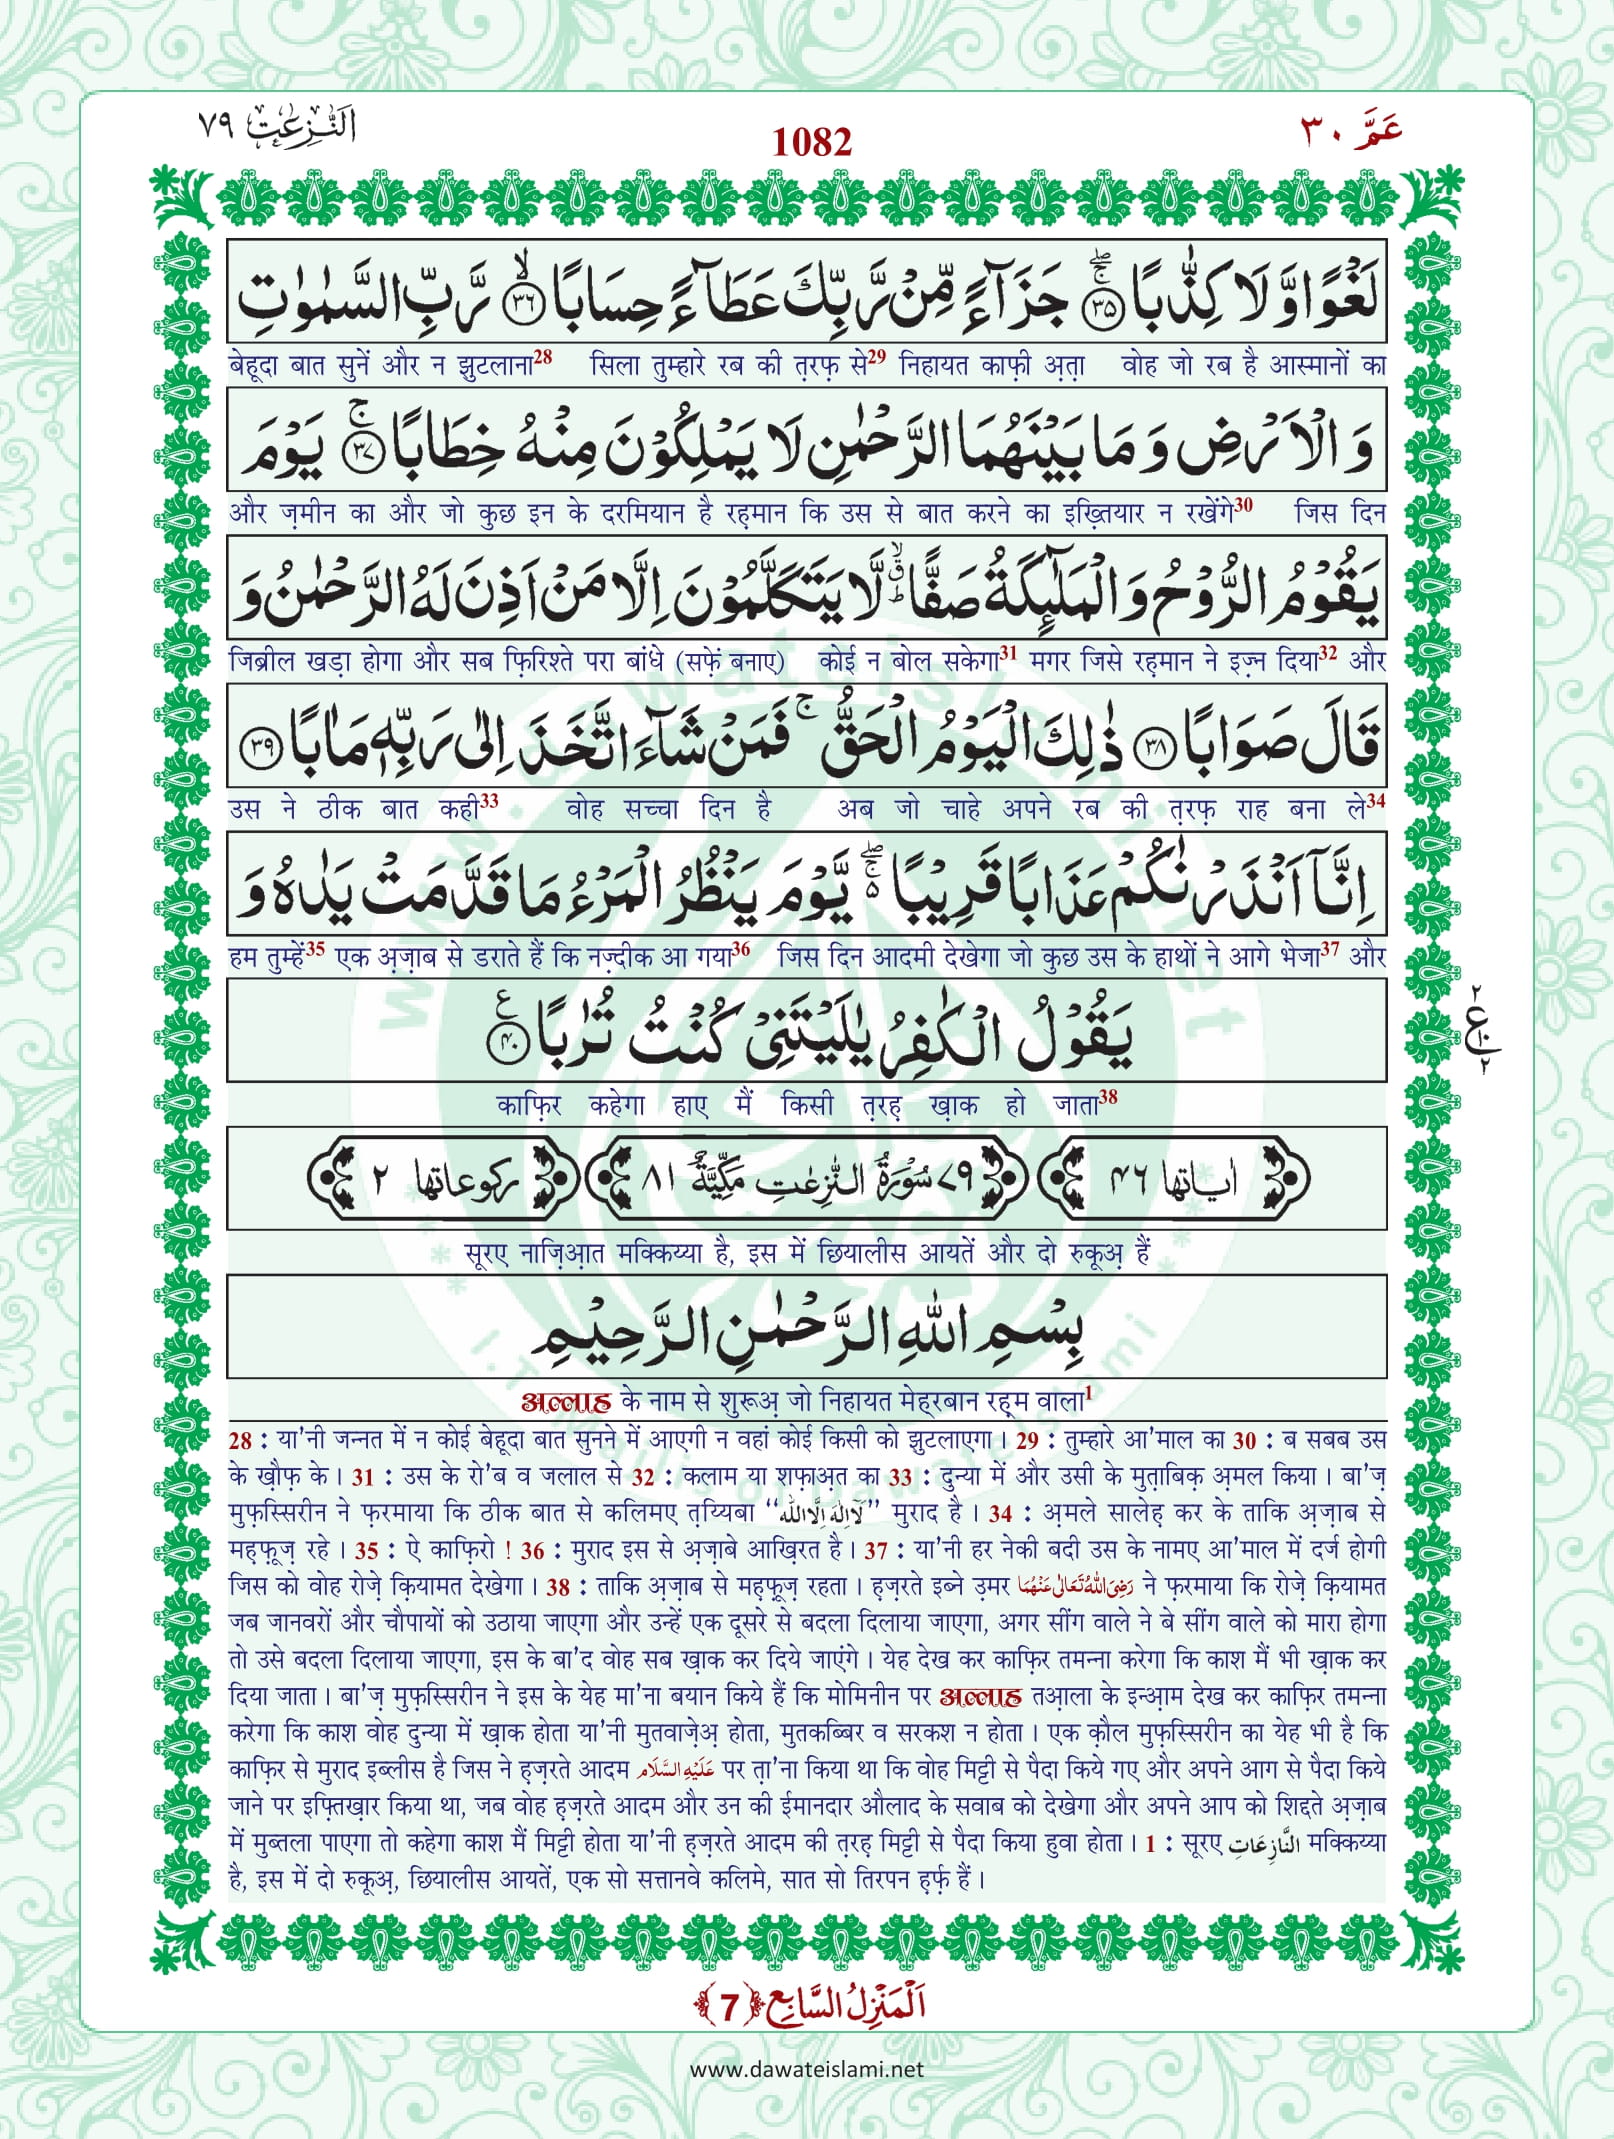 اَلنّٰزِعٰت ٧٩
1082
عَمَّ ٣٠
لَغْوًا وَّ لَا كِذّٰبًا ﴿۳۵﴾ جَزَآءً مِّنْ رَّبِّكَ عَطَآءً حِسَابًا ﴿۳۶﴾ رَّبِّ السَّمٰوٰتِ
बेहूदा बात सुनें और न झुटलाना28 सिला तुम्हारे रब की त़रफ़ से29 निहायत काफ़ी अ़त़ा वोह जो रब है आस्मानों का
وَ الْاَرْضِ وَ مَا بَیْنَهُمَا الرَّحْمٰنِ لَا یَمْلِكُوْنَ مِنْهُ خِطَابًا ﴿۳۷﴾ یَوْمَ
और ज़मीन का और जो कुछ इन के दरमियान है रह़मान कि उस से बात करने का इख़्तियार न रखेंगे30 जिस दिन
یَقُوْمُ الرُّوْحُ وَ الْمَلٰٓىٕكَةُ صَفًّا ﳝ لَّا یَتَكَلَّمُوْنَ اِلَّا مَنْ اَذِنَ لَهُ الرَّحْمٰنُ وَ
जिब्रील खड़ा होगा और सब फ़िरिश्ते परा बांधे (सफ़ें बनाए) कोई न बोल सकेगा31 मगर जिसे रह़मान ने इज़्न दिया32 और
قَالَ صَوَابًا ﴿۳۸﴾ ذٰلِكَ الْیَوْمُ الْحَقُّ ۚ فَمَنْ شَآءَ اتَّخَذَ اِلٰى رَبِّهٖ مَاٰبًا ﴿۳۹﴾
उस ने ठीक बात कही33 वोह सच्चा दिन है अब जो चाहे अपने रब की त़रफ़ राह बना ले34
اِنَّاۤ اَنْذَرْنٰكُمْ عَذَابًا قَرِیْبًا ۚۖ۬ یَّوْمَ یَنْظُرُ الْمَرْءُ مَا قَدَّمَتْ یَدٰهُ وَ
हम तुम्हें35 एक अ़ज़ाब से डराते हैं कि नज़्दीक आ गया36 जिस दिन आदमी देखेगा जो कुछ उस के हाथों ने आगे भेजा37 और
یَقُوْلُ الْكٰفِرُ یٰلَیْتَنِیْ كُنْتُ تُرٰبًا ﴿۴۰﴾
٢ ع ٢
काफ़िर कहेगा हाए मैं किसी त़रह़ ख़ाक हो जाता38
اٰیاتها ٤٦ ٧٩ سُوْرَةُ النّٰزِعٰتِ مَكِّیَّةٌ ٨١ ركوعاتها ٢
सूरए नाज़िआ़त मक्किय्या है, इस में छियालीस आयतें और दो रुकूअ़ हैं
بِسْمِ اللّٰهِ الرَّحْمٰنِ الرَّحِیْمِ
अल्लाह के नाम से शुरूअ़ जो निहायत मेह्‌रबान रह़्म वाला1
28 : या'नी जन्नत में न कोई बेहूदा बात सुनने में आएगी न वहां कोई किसी को झुटलाएगा। 29 : तुम्हारे आ'माल का 30 : ब सबब उस
के ख़ौफ़ के। 31 : उस के रो'ब व जलाल से 32 : कलाम या शफ़ाअ़त का 33 : दुन्या में और उसी के मुत़ाबिक़ अ़मल किया। बा'ज़
मुफ़स्सिरीन ने फ़रमाया कि ठीक बात से कलिमए त़य्यिबा ‘‘لَآ اِلٰهَ اِلَّا اللّٰه’’ मुराद है। 34 : अ़मले सालेह़ कर के ताकि अ़ज़ाब से
मह़फ़ूज़ रहे। 35 : ऐ काफ़िरो ! 36 : मुराद इस से अ़ज़ाबे आख़िरत है। 37 : या'नी हर नेकी बदी उस के नामए आ'माल में दर्ज होगी
जिस को वोह रोज़े क़ियामत देखेगा। 38 : ताकि अ़ज़ाब से मह़फ़ूज़ रहता। ह़ज़रते इब्ने उ़मर رَضِیَ اللّٰهُ تَعَالٰى عَنْهُمَا ने फ़रमाया कि रोज़े क़ियामत
जब जानवरों और चौपायों को उठाया जाएगा और उन्हें एक दूसरे से बदला दिलाया जाएगा, अगर सींग वाले ने बे सींग वाले को मारा होगा
तो उसे बदला दिलाया जाएगा, इस के बा'द वोह सब ख़ाक कर दिये जाएंगे। येह देख कर काफ़िर तमन्ना करेगा कि काश मैं भी ख़ाक कर
दिया जाता। बा'ज़ मुफ़स्सिरीन ने इस के येह मा'ना बयान किये हैं कि मोमिनीन पर अल्लाह तआ़ला के इन्आ़म देख कर काफ़िर तमन्ना
करेगा कि काश वोह दुन्या में ख़ाक होता या'नी मुतवाज़ेअ़ होता, मुतकब्बिर व सरकश न होता। एक क़ौल मुफ़स्सिरीन का येह भी है कि
काफ़िर से मुराद इब्लीस है जिस ने ह़ज़रते आदम عَلَیْهِ السَّلَام पर त़ा'ना किया था कि वोह मिट्टी से पैदा किये गए और अपने आग से पैदा किये
जाने पर इफ़्तिख़ार किया था, जब वोह ह़ज़रते आदम और उन की ईमानदार औलाद के सवाब को देखेगा और अपने आप को शिद्दते अ़ज़ाब
में मुब्तला पाएगा तो कहेगा काश मैं मिट्टी होता या'नी ह़ज़रते आदम की त़रह़ मिट्टी से पैदा किया हुवा होता। 1 : सूरए النَّازِعَاتِ मक्किय्या
है, इस में दो रुकूअ़, छियालीस आयतें, एक सो सत्तानवे कलिमे, सात सो तिरपन ह़र्फ़ हैं।
اَلْمَنْزِلُ السَّابِع ﴿7﴾
www.dawateislami.net